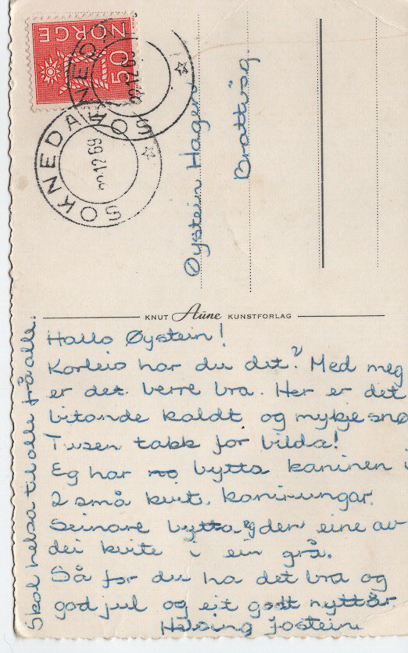 NORGE
50
SOKNEDAL
22 12 69
SOKNEDAL
Øystein Hagen
Brattvåg.
KNUT Aune KUNSTFORLAG
Hallo Øystein!
Korleis har du det? Med meg
er det berre bra. Her er det
bitande kaldt, og mykje snø
Tusen takk for bilda!
Eg har no bytta kaninen i
2 små kvit. kaninungar.
Seinare bytta eg den eine av
dei kvite i ein grå.
Så får du ha det bra og
god jul og eit godt nyttår
Helsing Jostein.
Skal helsa til alle frå alle.